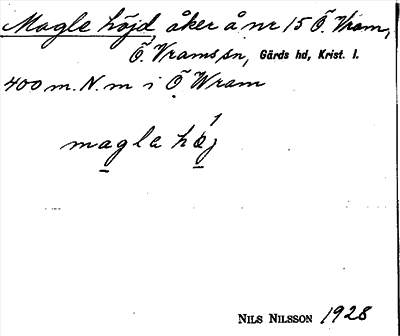 Magle höjd, åker å nr 15 Ö. Vram,
Ö. Vrams sn, Gärds hd, Krist. l.
400 m. N. m i Ö Wram
magla höj
NILS NILSSON 1928